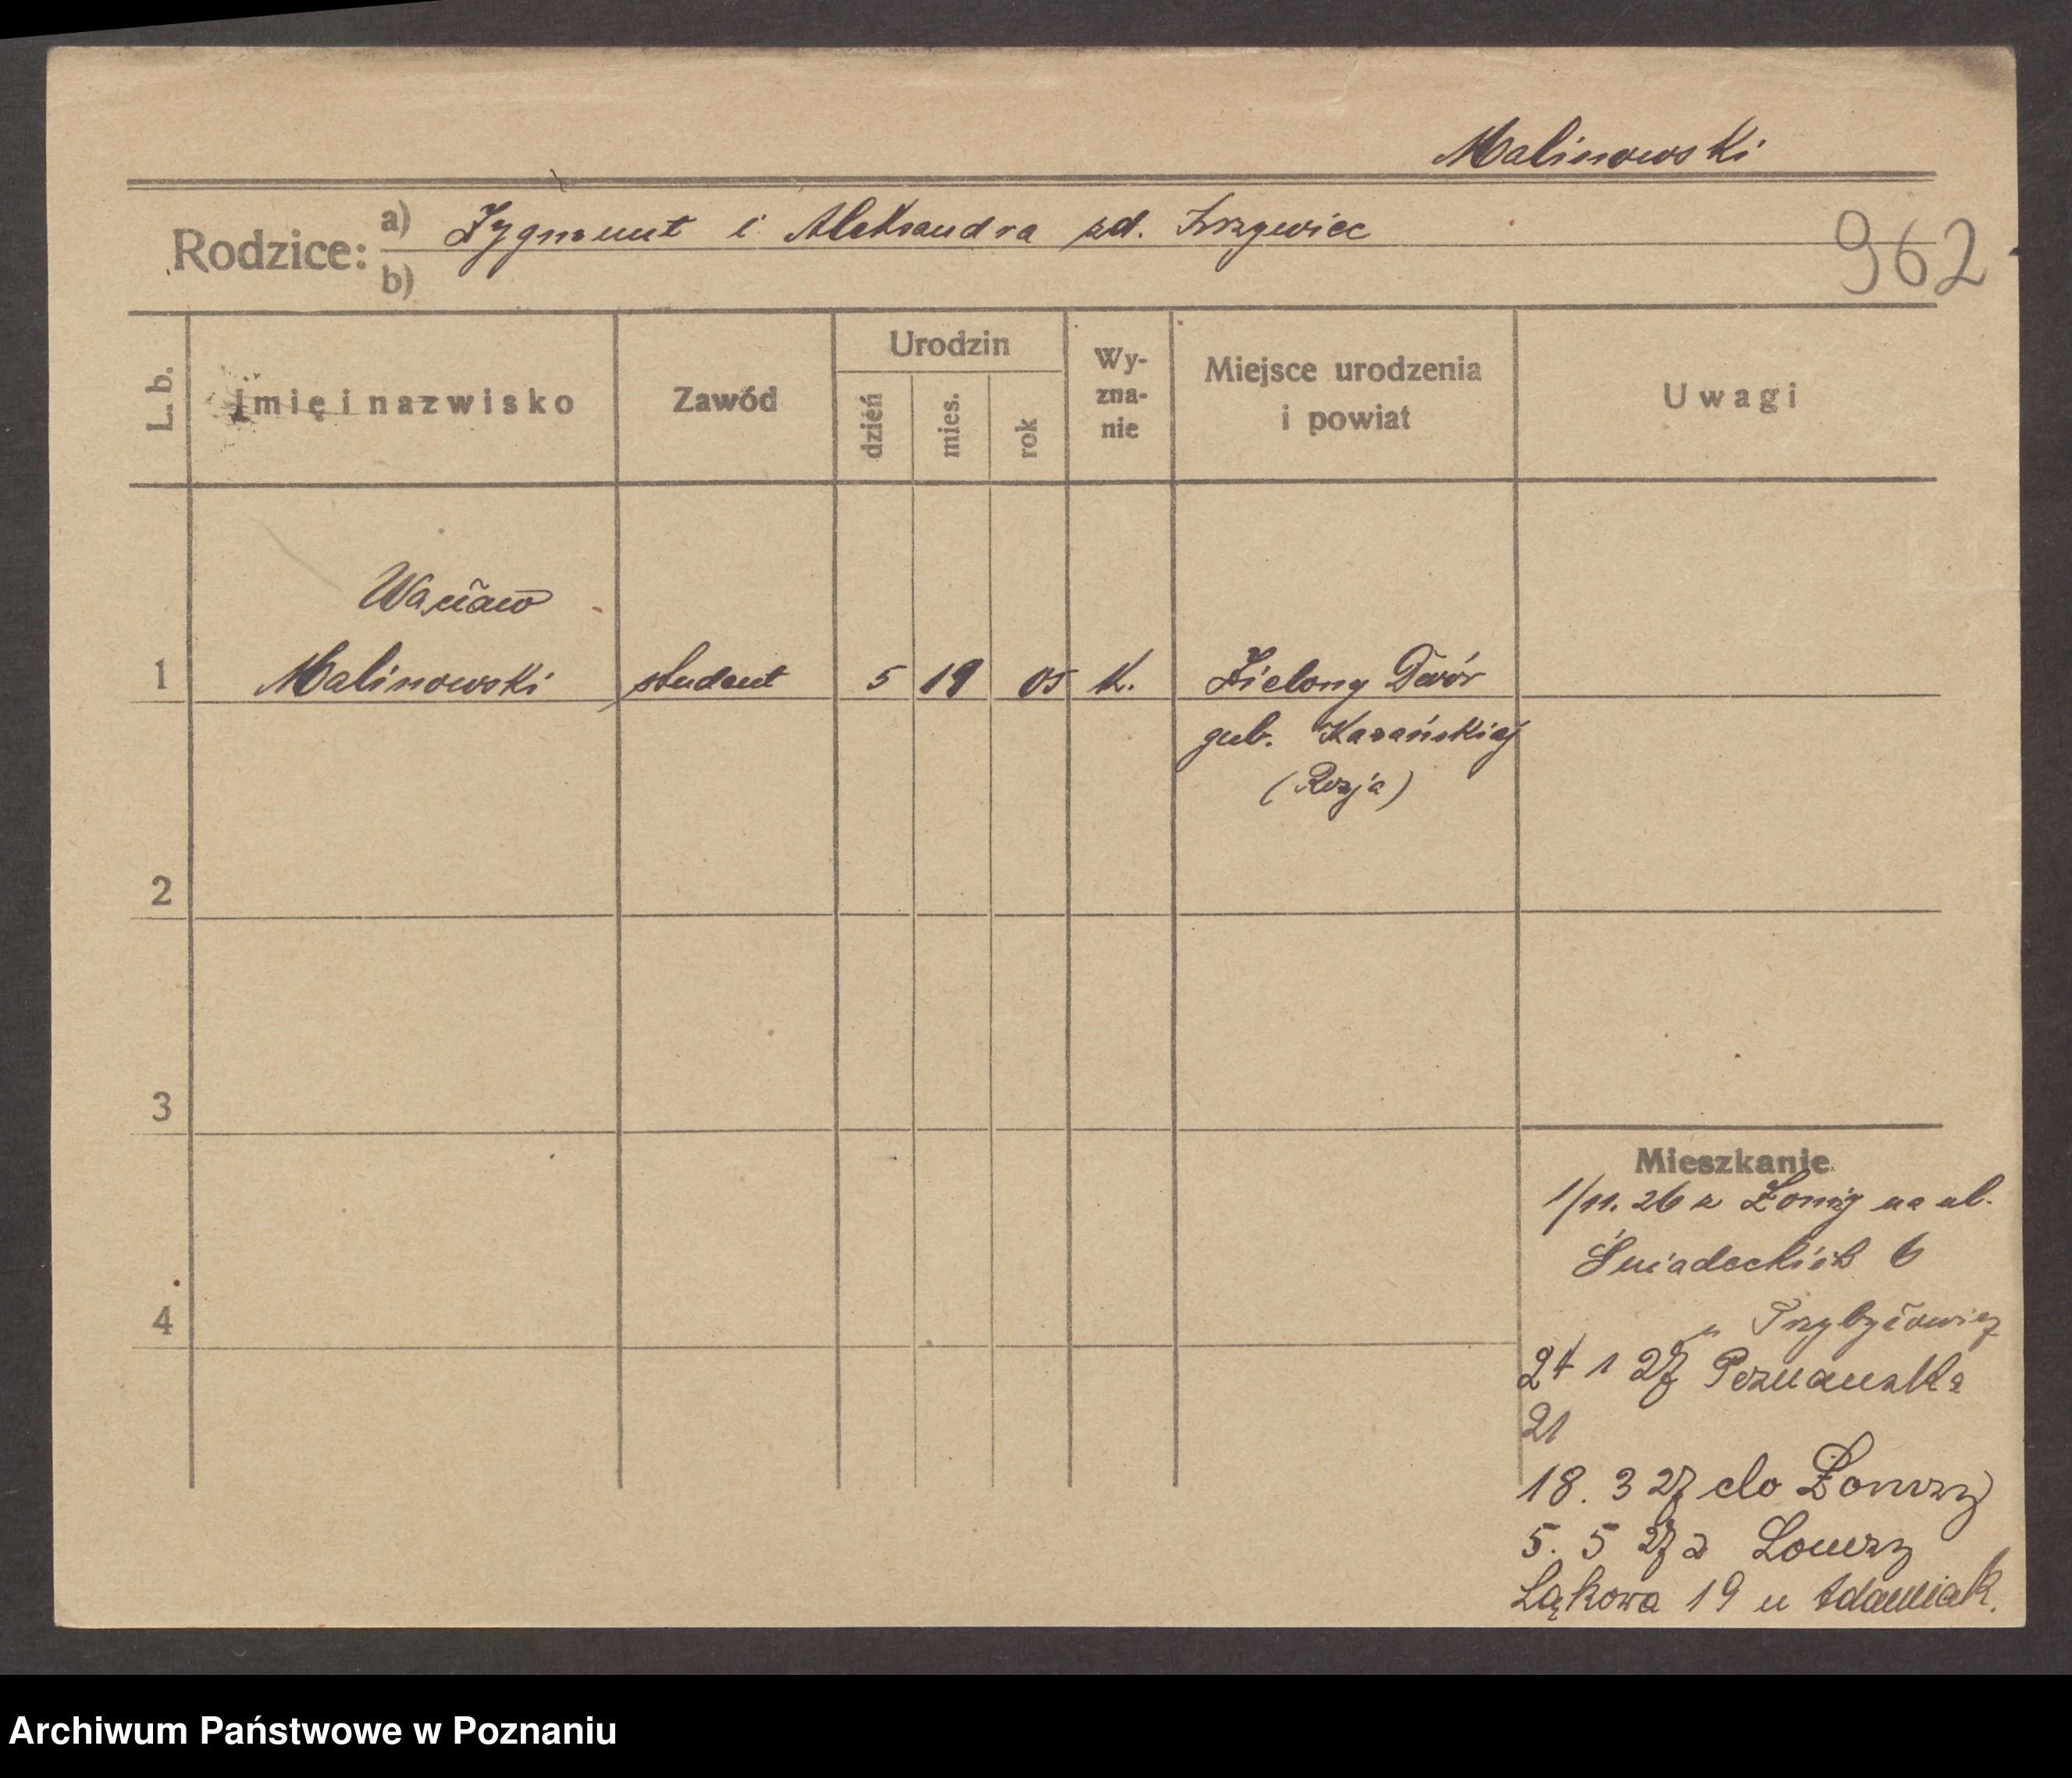 Malinowski
Rodzice: a) Zygmunt i Aleksandra zd.
b)
962
L. b.
Imię i nazwisko
Zawód
Urodzin
dzień
mies.
rok
Wy-
zna-
nie
Miejsce urodzenia
i powiat
Uwagi
Wacław
1 Malinowski student 5 19 05 K. Zielony Dwór
gub. Kazańskiej
(Rosja)
2
3
4
Mieszkanie
1/11. 26 z Łomży na ul.
Śniadeckich 6
u
24 1 27 Poznańska
21
18. 3 27 do Łomży
5. 5 27 z Łomży
Łąkowa 19 u Adamiak.
Archiwum Państwowe w Poznaniu